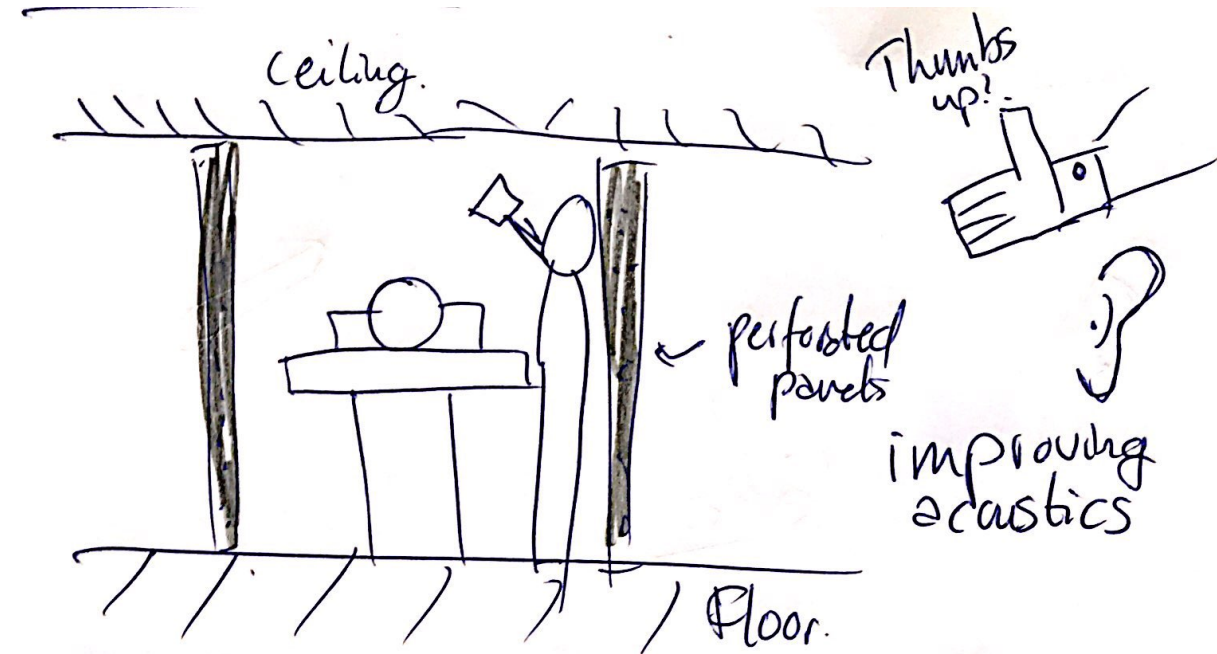 Ceiling.
Thumbs
up?.
perforated
panels
improving
acoustics
Floor.